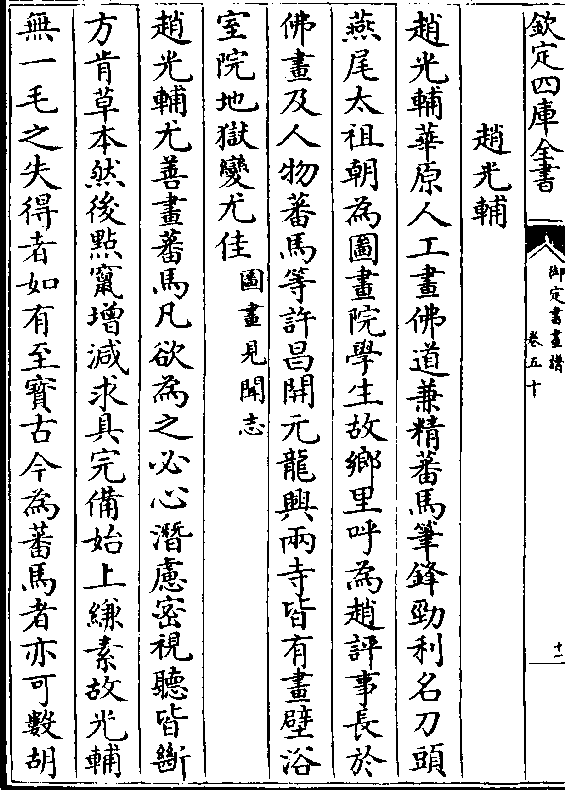 欽定四庫全書
御定書畫譜
卷五十
十一
趙光輔
趙光輔華原人工畫佛道兼精蕃馬筆鋒勁利名刀頭
燕尾太祖朝為圖畫院學生故鄉里呼為趙評事長於
佛畫及人物蕃馬等許昌開元龍興兩寺皆有畫壁浴
室院地獄變尤佳圖畫見聞志
趙光輔尤善畫蕃馬凡欲為之必心潛慮密視聽皆斷
方肯草本然後點竄增減求具完備始上縑素故光輔
無一毛之失得者如有至寳古今為蕃馬者亦可數胡